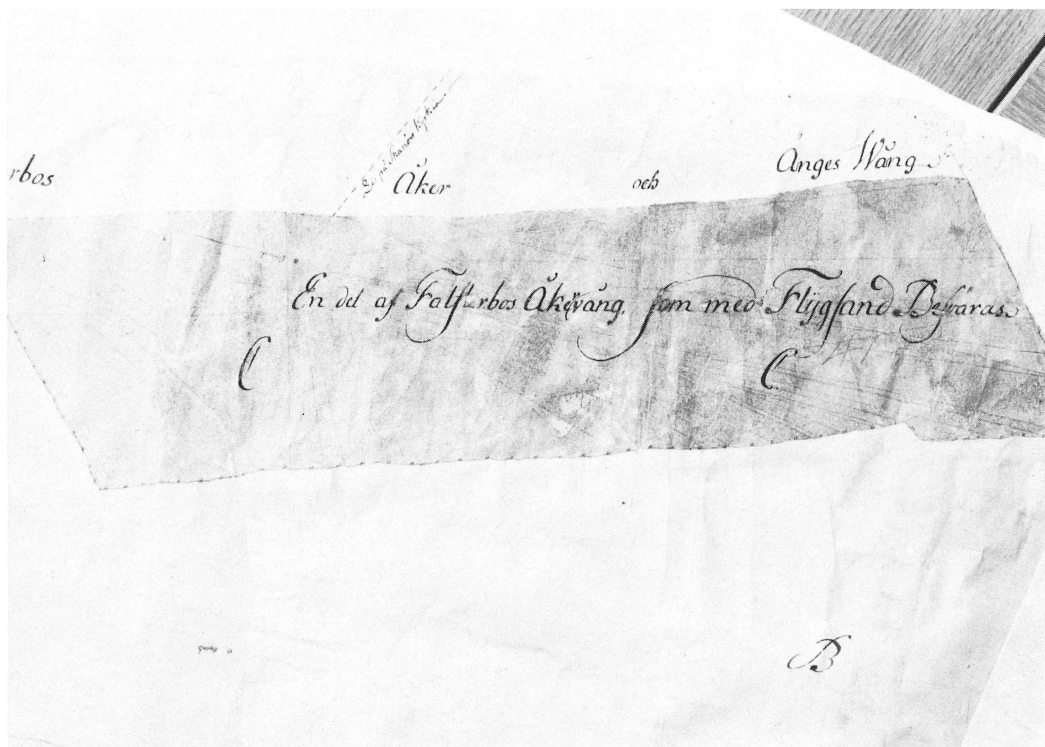 rbos Åker och Änges Wång
En del af Falsterbos Åkervång, som med Flygsand Besväras
C C
B